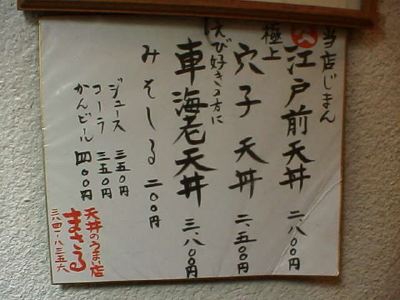 当店じまん
江戸前天丼 二、八〇〇円
極上
穴子天丼 二、五〇〇円
えび好きの方に
車海老天丼 三、八〇〇円
みそしる 二〇〇円
ジュース 三五〇円
コーラ 三五〇円
かんビール 四〇〇円
天丼のうまい店
まさる
三八四一-八三五六